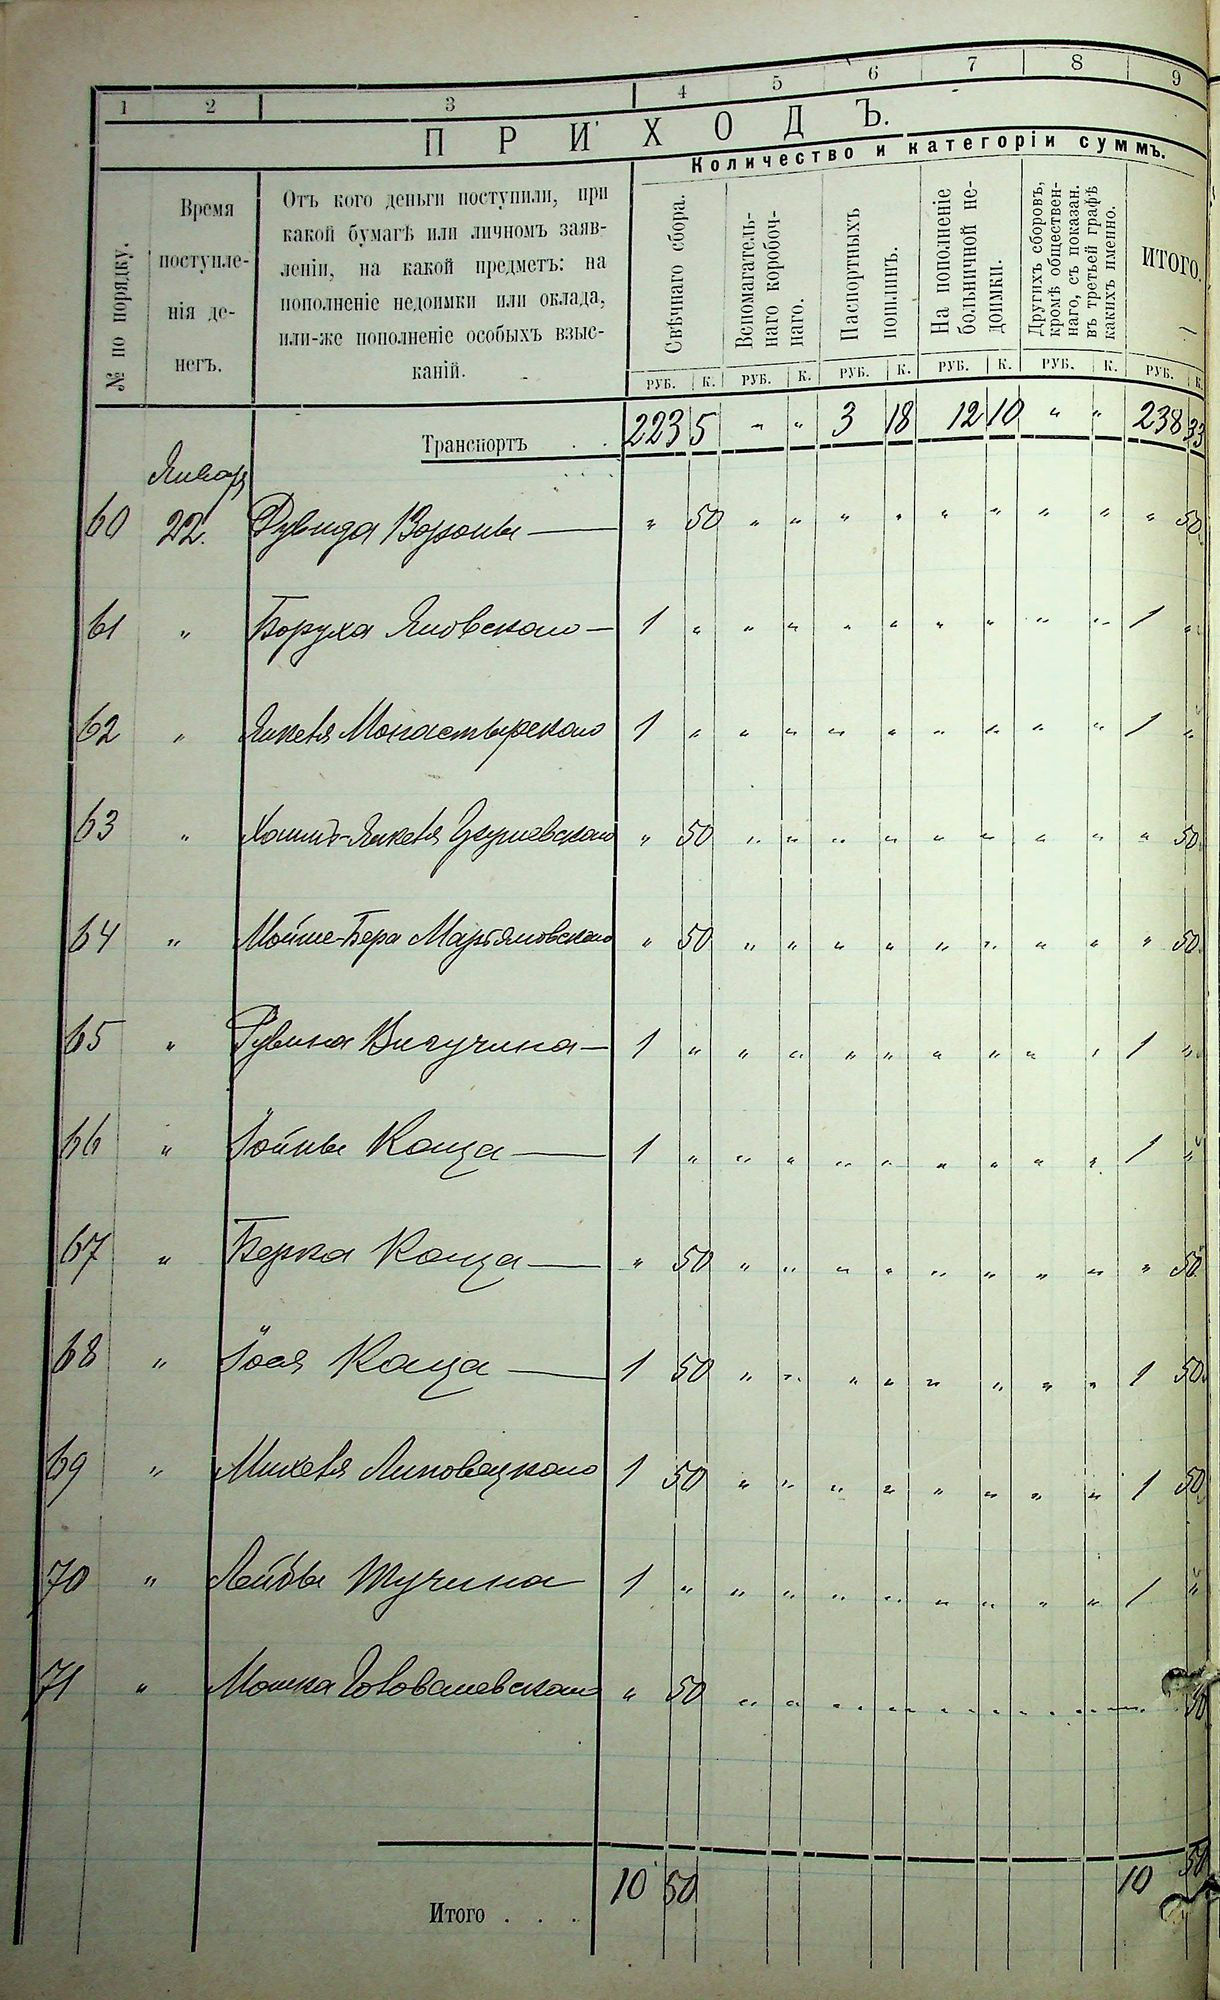 1 2 3 4 5 6 7 8 9
ПРИХОДЪ.
Количество и категоріи суммъ.
№ по порядку.
Время
поступле-
нія де-
негъ.
Отъ кого деньги поступили, при
какой бумагѣ или личномъ заяв-
леніи, на какой предметъ: на
пополненіе недоимки или оклада,
или-же пополненіе особыхъ взыс-
каній.
Свѣчнаго сбора.
Вспомагатель-
наго коробоч-
наго.
Паспортныхъ
пошлинъ.
На пополненіе
больничной не-
доимки.
Другихъ сборовъ,
кромѣ обществен-
наго, съ показан.
въ третьей графѣ
какихъ именно.
ИТОГО.
РУБ. К. РУБ. К. РУБ. К. РУБ. К. РУБ. К. РУБ. К.
Транспортъ . . 223 5 " " 3 18 12 10 " " 238 33
Января
60 22. Вороны — " 50 " " " " " " " " " 50
61 " Боруха Яновскаго — 1 " " " " " " " " " 1 "
62 " Янкеля Монастырскаго 1 " " " " " " " " " 1 "
63 " -Янкеля " 50 " " " " " " " " " 50
64 " Мойше-Бера " 50 " " " " " " " " " 50
65 " Рувина — 1 " " " " " " " " " 1 "
66 " Іойны Каца — 1 " " " " " " " " " 1 "
67 " Берка Каца — " 50 " " " " " " " " " 50
68 " Іося Каца — 1 50 " " " " " " " " 1 50
69 " Михеля Липовецкаго 1 50 " " " " " " " " 1 50
70 " Лейбы Шучина 1 " " " " " " " " " 1 "
71 " Мошка " 50 " " " " " " " " " 50
Итого . . . 10 50 10 50